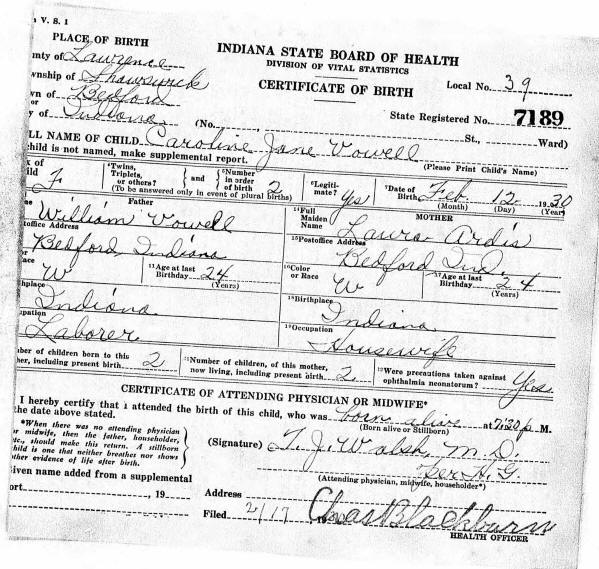 V. S. 1
PLACE OF BIRTH
INDIANA STATE BOARD OF HEALTH
DIVISION OF VITAL STATISTICS
CERTIFICATE OF BIRTH
unty of Lawrence
Local No. 39
wnship of Shawswick
wn of Bedford
or
State Registered No. 7189
y of Indiana (No. , St., Ward)
LL NAME OF CHILD Caroline Jane Vowell
(Please Print Child's Name)
hild is not named, make supplemental report.
x of
ild F
4Twins, Triplets, or others? } and { 5Number in order of birth 2
(To be answered only in event of plural births)
6Legitimate? Yes
7Date of Birth Feb. 12 1930
(Month) (Day) (Year)
Father
William Vowell
14Full Maiden Name MOTHER
Laura Ardis
ostoffice Address
Bedford, Indiana
15Postoffice Address
Bedford Ind.
or
Race W
11Age at last Birthday 24
(Years)
16Color or Race W
17Age at last Birthday 24
(Years)
thplace
Indiana
18Birthplace
Indiana
upation
Laborer
19Occupation
Housewife
ber of children born to this
her, including present birth 2
21Number of children, of this mother, now living, including present birth 2
Were precautions taken against ophthalmia neonatorum? Yes
CERTIFICATE OF ATTENDING PHYSICIAN OR MIDWIFE*
I hereby certify that I attended the birth of this child, who was born alive at 7:30 p M.
(Born alive or Stillborn)
the date above stated.
*When there was no attending physician
or midwife, then the father, householder,
etc., should make this return. A stillborn
hild is one that neither breathes nor shows
ther evidence of life after birth.
(Signature) T. J. Walsh, M. D.
Per H. G.
(Attending physician, midwife, householder*)
iven name added from a supplemental
ort , 19
Address
Filed 2/17 1930 Chas Blackburn
HEALTH OFFICER